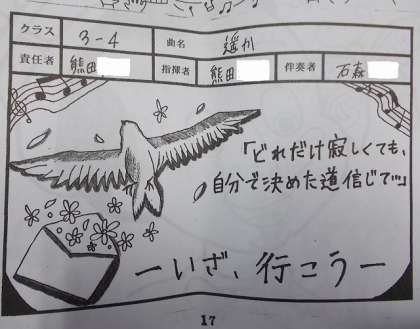 クラス 3-4 曲名 遥か
責任者 熊田 指揮者 熊田 伴奏者 石森
「どれだけ寂しくても、
自分で決めた道信じて…」
ーいざ、行こうー
17